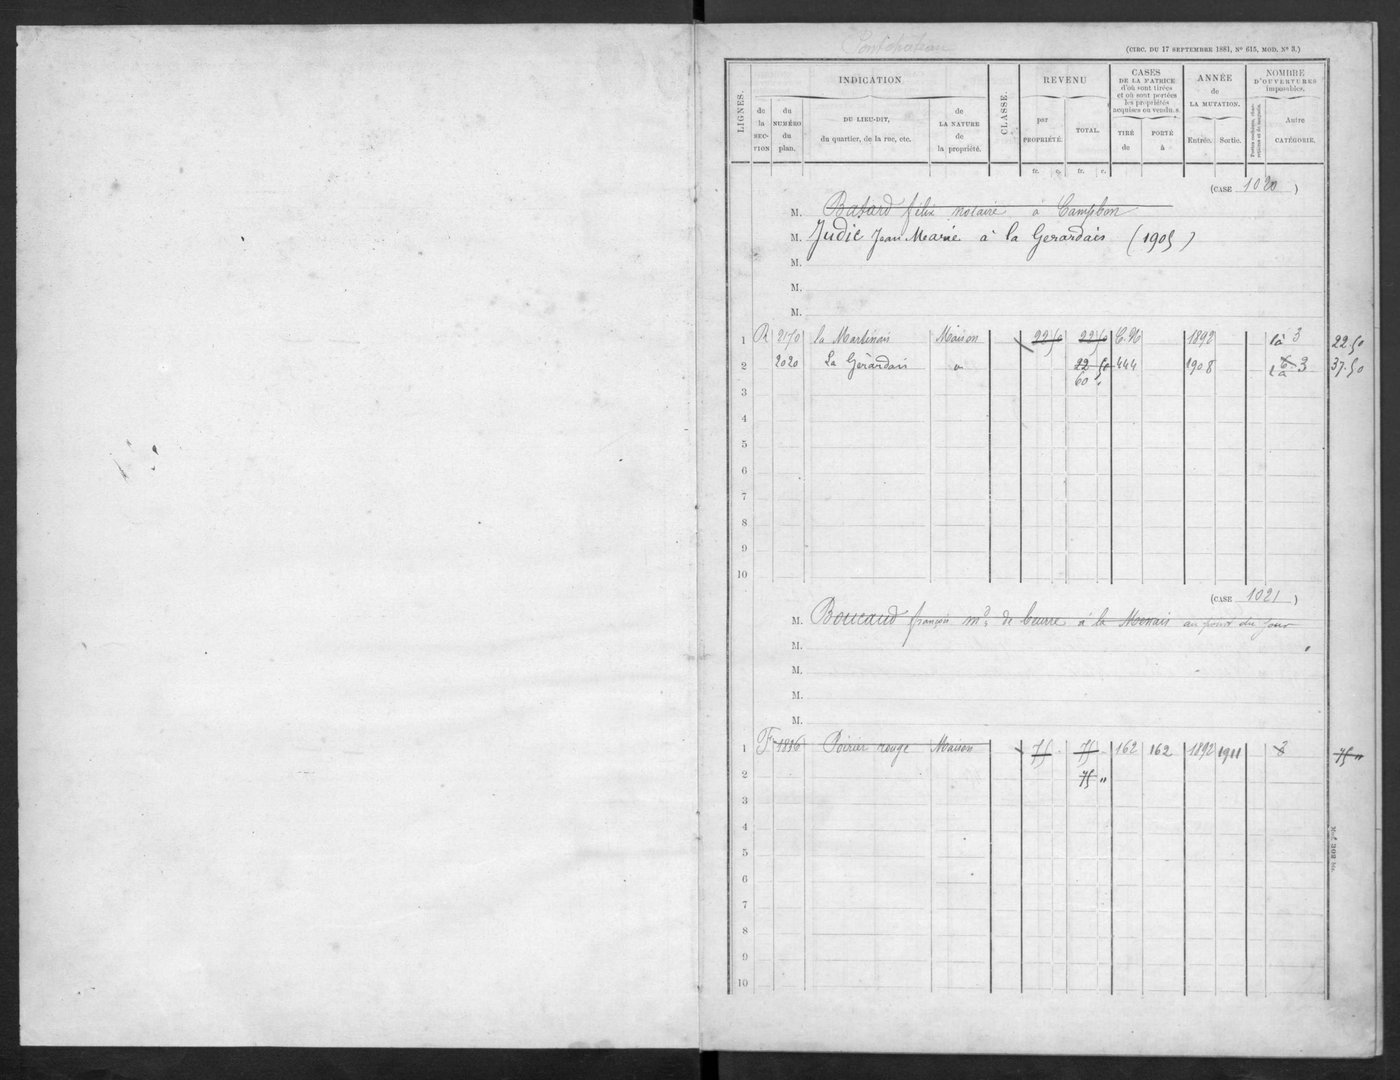 Pontchateau
(CIRC. DU 17 SEPTEMBRE 1881, N° 615, MOD. N° 3.)
LIGNES.
INDICATION
de la SECTION
du NUMÉRO du plan.
DU LIEU-DIT, du quartier, de la rue, etc.
de LA NATURE de la propriété.
CLASSE.
REVENU
par PROPRIÉTÉ.
TOTAL.
CASES DE LA MATRICE d'où sont tirées et où sont portées les propriétés acquises ou vendues.
TIRÉ de
PORTÉ à
ANNÉE de LA MUTATION.
Entrée.
Sortie.
NOMBRE D'OUVERTURES imposables.
Autre CATÉGORIE.
fr. c. fr. c.
(CASE 1020 )
M. Batard félix notaire à Campbon
M. Judic Jean Marie à la Gerardais (1905)
M.
M.
M.
1 R 2170 la Martinais Maison 22 50 22 50 C.N 1892 1à 3 22.50
2 2020 La Gérardais 22 50 444 1908 1à 3 37.50
60 "
3
4
5
6
7
8
9
10
(CASE 1021 )
M. Boucaud françois md de beurre à la Monnais au point du jour
M.
M.
M.
M.
1 F 1896 Poirier rouge Maison 75 75 162 162 1892 1911 3 75 "
2 75 "
3
4
5
6
7
8
9
10